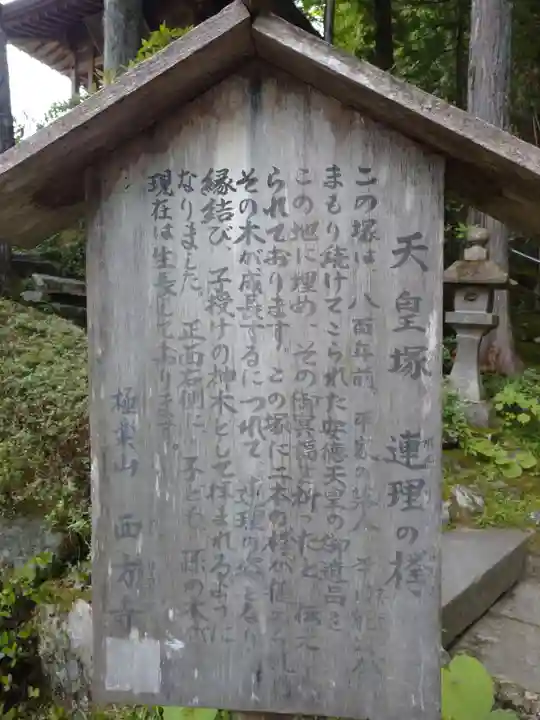 天皇塚 連理の欅
この塚は、八百年前、平家の
まもり続けてこられた安徳天皇の御遺品を
この地に埋め、その御冥福を祈ったと、伝え
られております。この塚に二本の欅が
その木が成長するにつれて、連理の となり
縁結び、子授けの神木として拝まれるように
なりました。正面右側に、子ども、孫の木が
現在は生長しております。
極楽山 西方寺